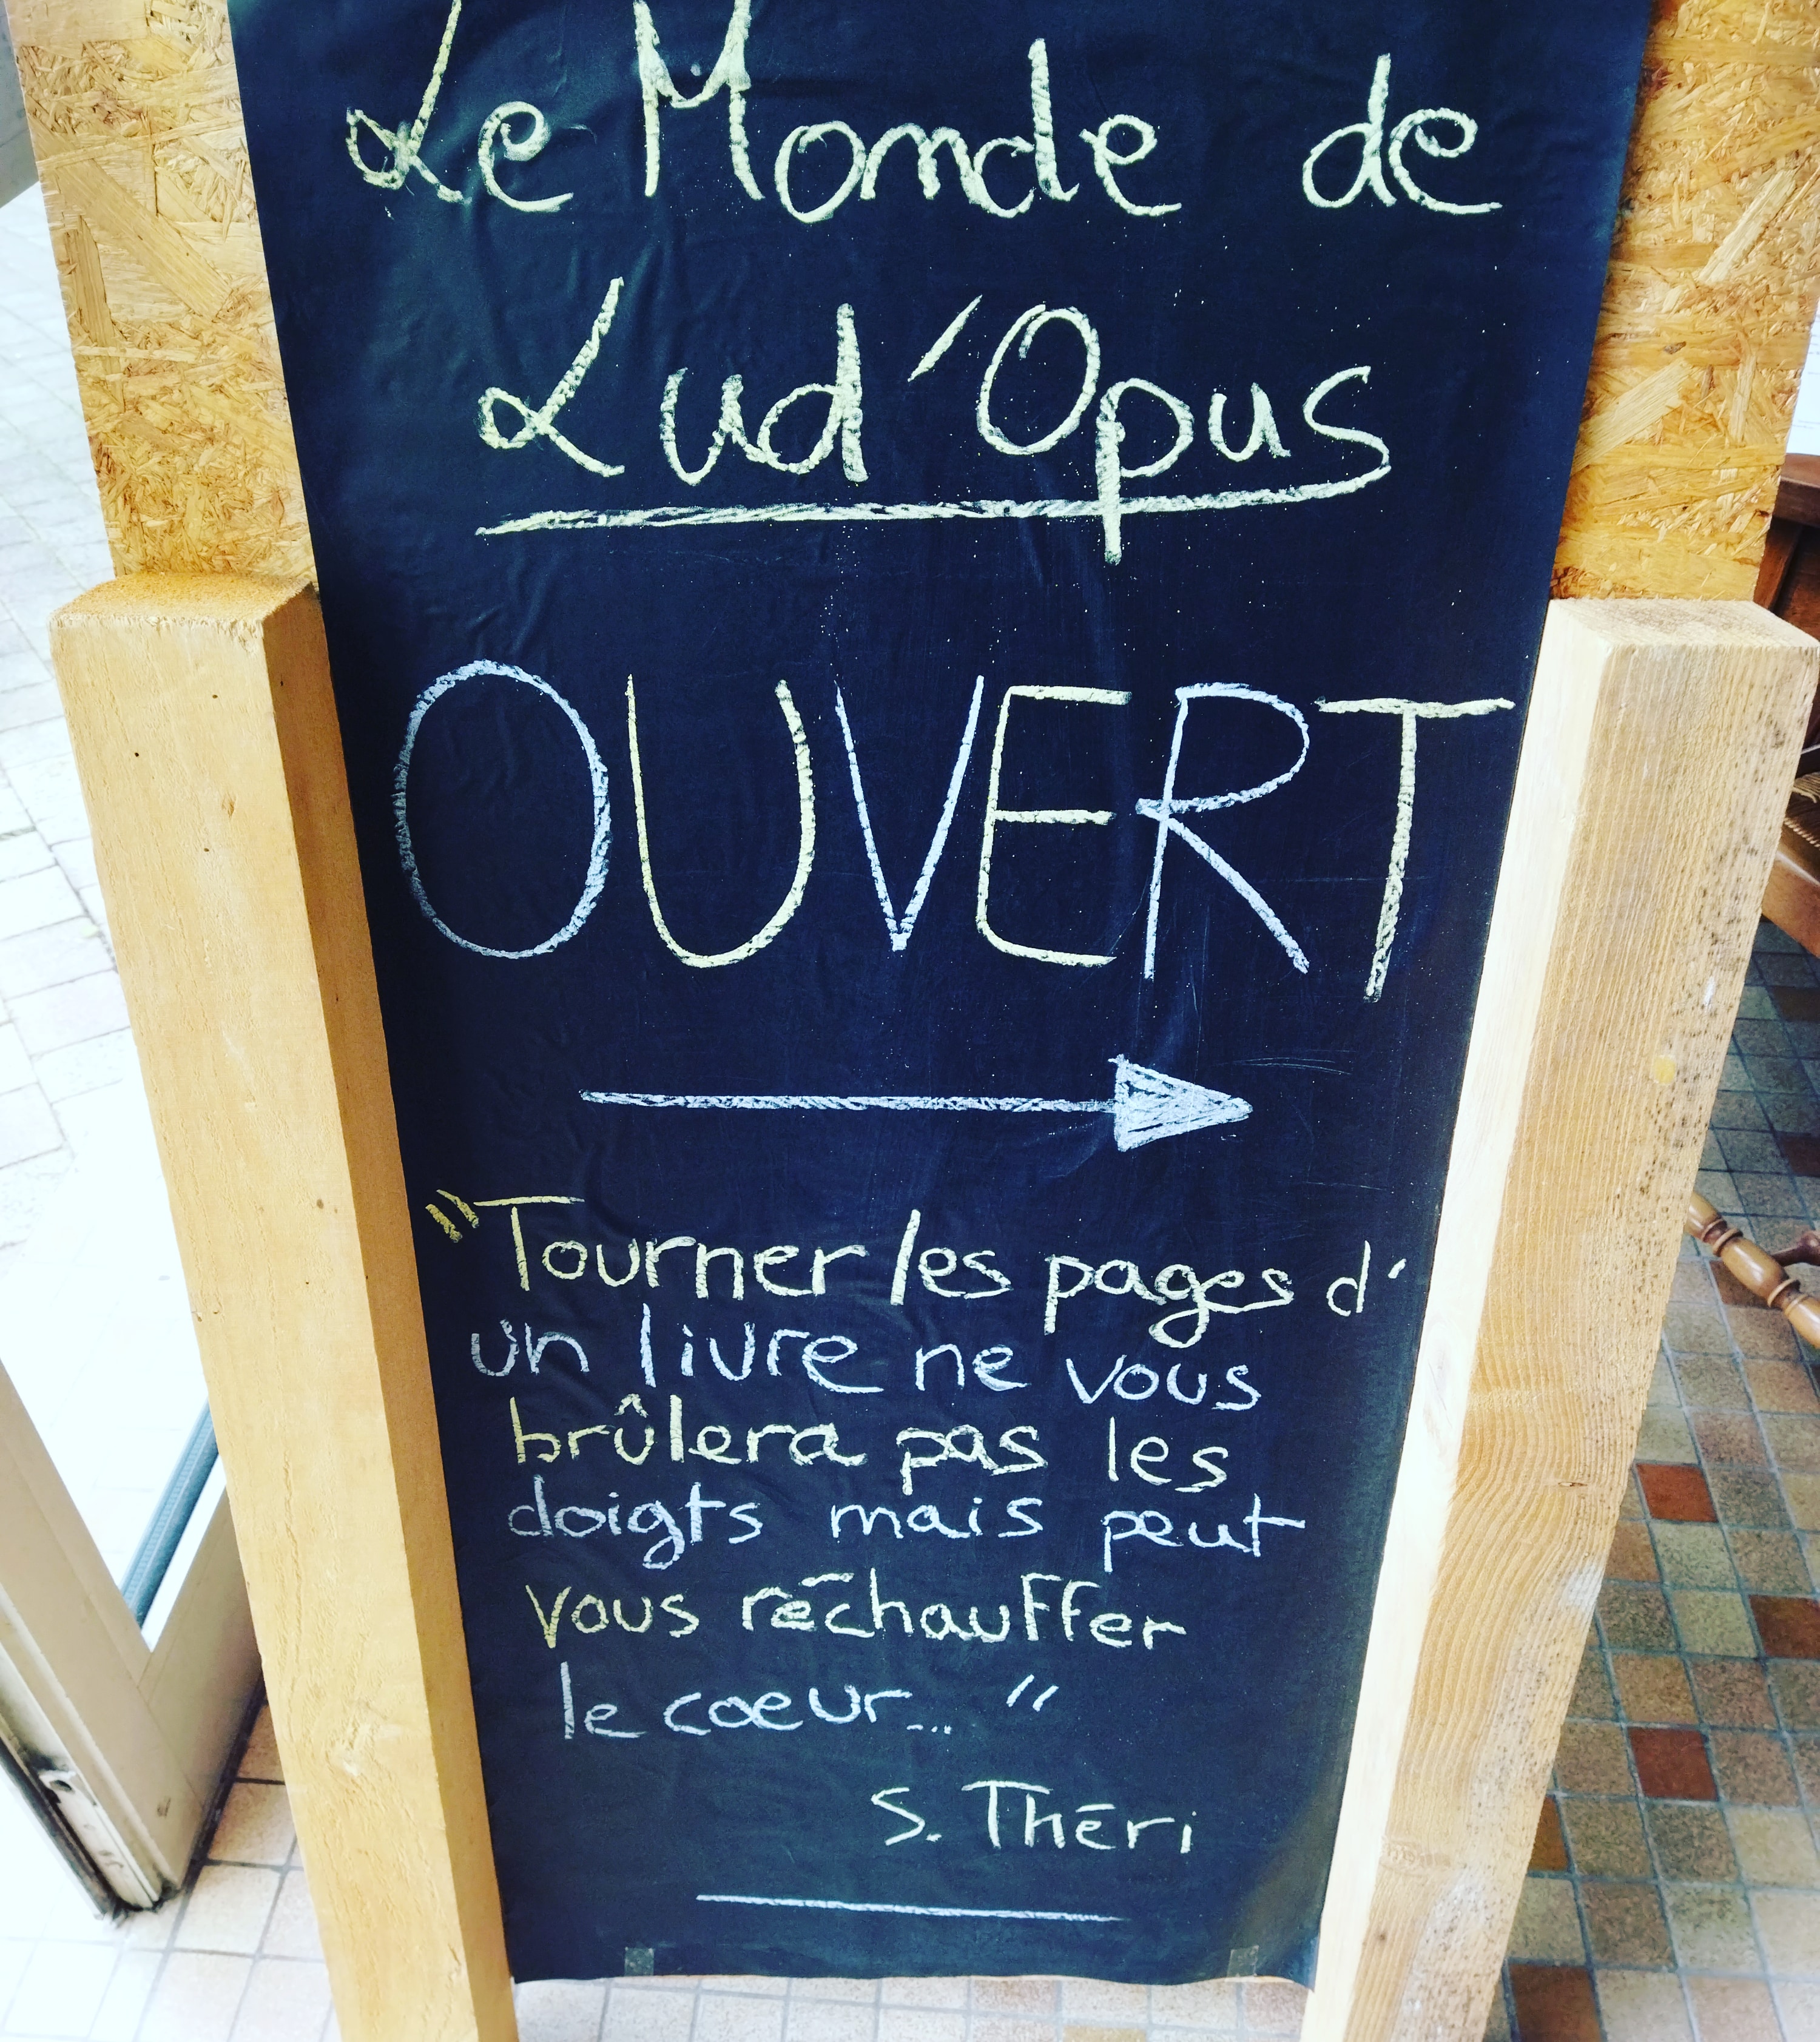 Le Monde de
Lud'Opus
OUVERT
"Tourner les pages d'
un livre ne vous
brûlera pas les
doigts mais peut
vous réchauffer
le coeur... "
S. Théri